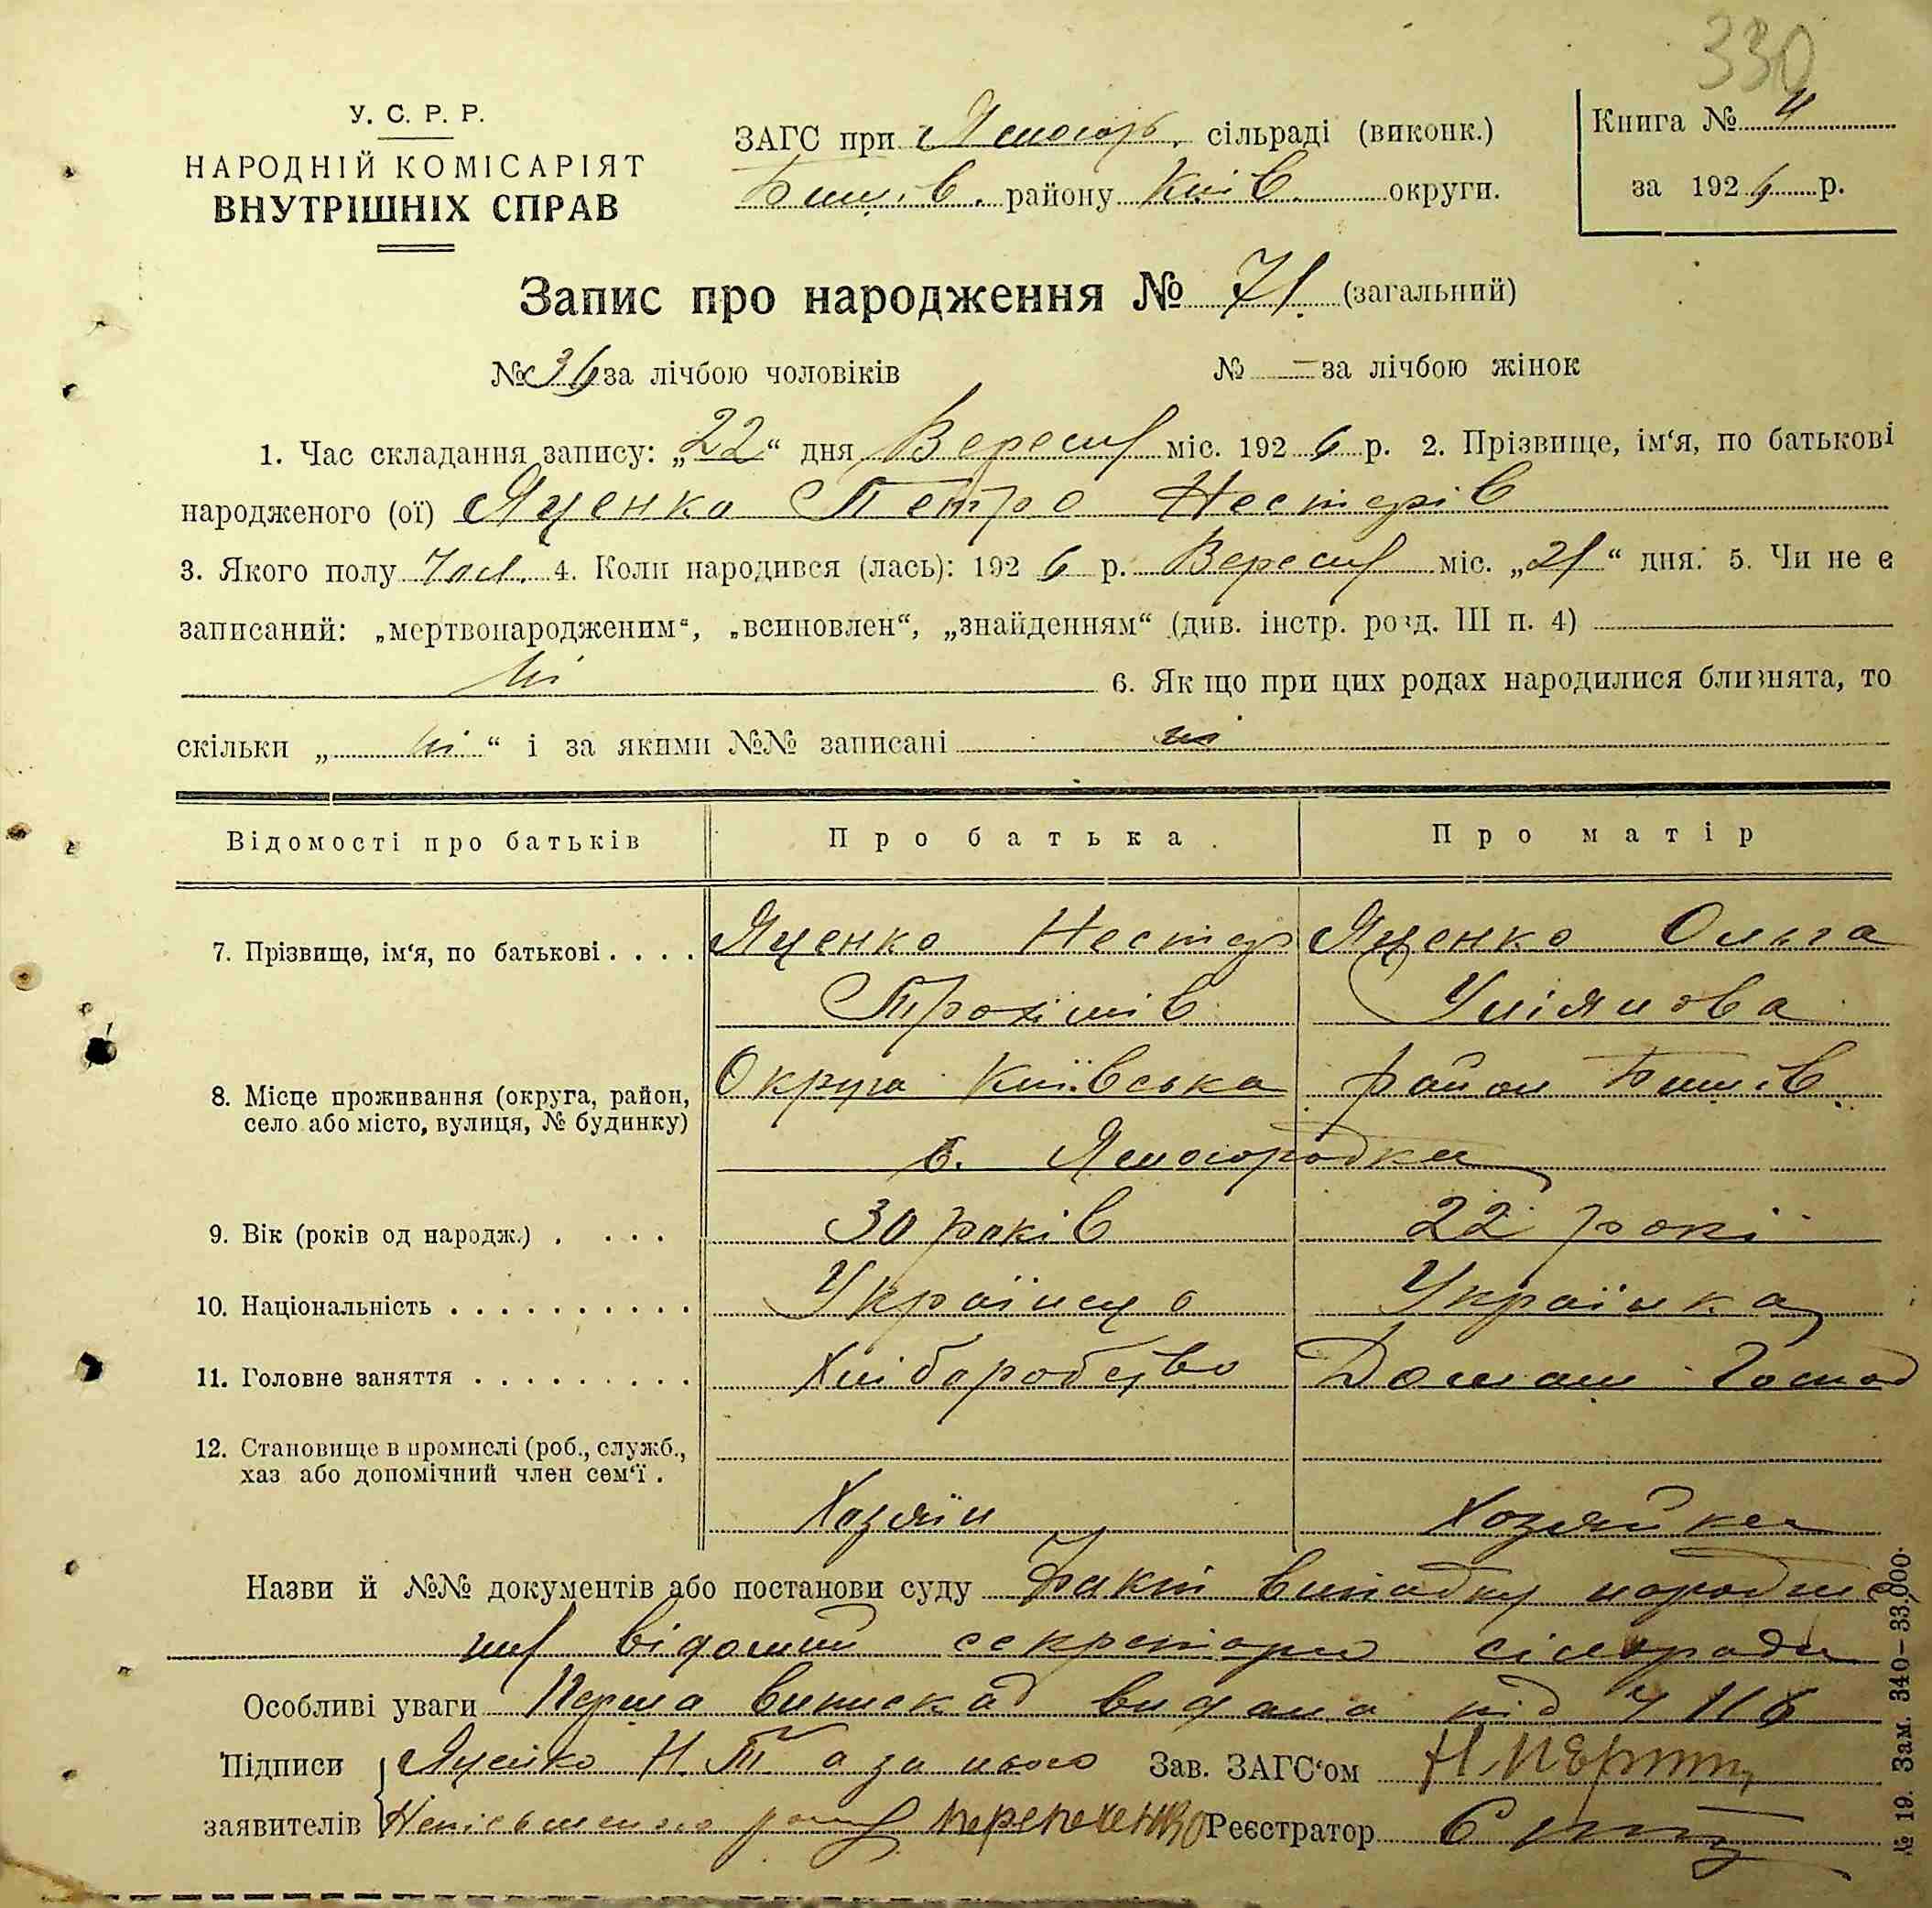 330
У. С. Р. Р.
НАРОДНІЙ КОМІСАРІЯТ
ВНУТРІШНІХ СПРАВ
ЗАГС при Ясногор. сільраді (виконк.)
Бишів. району Київ. округи.
Книга № 4
за 1926 р.
Запис про народження № 71. (загальний)
№ 36 за лічбою чоловіків № — за лічбою жінок
1. Час складання запису: „22“ дня Вересня міс. 1926 р. 2. Прізвище, ім‘я, по батькові
народженого (ої) Яценко Петро Нестерів
3. Якого полу Чол. 4. Коли народився (лась): 1926 р. Вересня міс. „21“ дня. 5. Чи не є
записаний: „мертвонародженим“, „всиновлен“, „знайденням“ (див. інстр. розд. III п. 4)
ні 6. Якщо при цих родах народилися близнята, то
скільки „ ні “ і за якими №№ записані ні
Відомості про батьків Про батька Про матір
7. Прізвище, ім‘я, по батькові . . . . Яценко Нестер Яценко Ольга
Трохимів Улянова
8. Місце проживання (округа, район, Округа Київська район Бишів.
село або місто, вулиця, № будинку)
с. Ясногородка
9. Вік (років од народж.) . . . . 30 років 22 рокі
10. Національність . . . . . . . . . . Українець Українка
11. Головне заняття . . . . . . . . . Хліборобство Домаш. Господ
12. Становище в промислі (роб., служб.,
хаз або допомічний член сем‘ї .
Хозяїн Хозяйка
Назви й №№ документів або постанови суду Факт випадку народже
ня відомий секретарю сільради
Особливі уваги Перша виписка видана під
Підписи Яценко Н. Т. а за нього Зав. ЗАГС‘ом
заявителів Неписьменного Реєстратор
№ 19. Зам. 340—33.000.